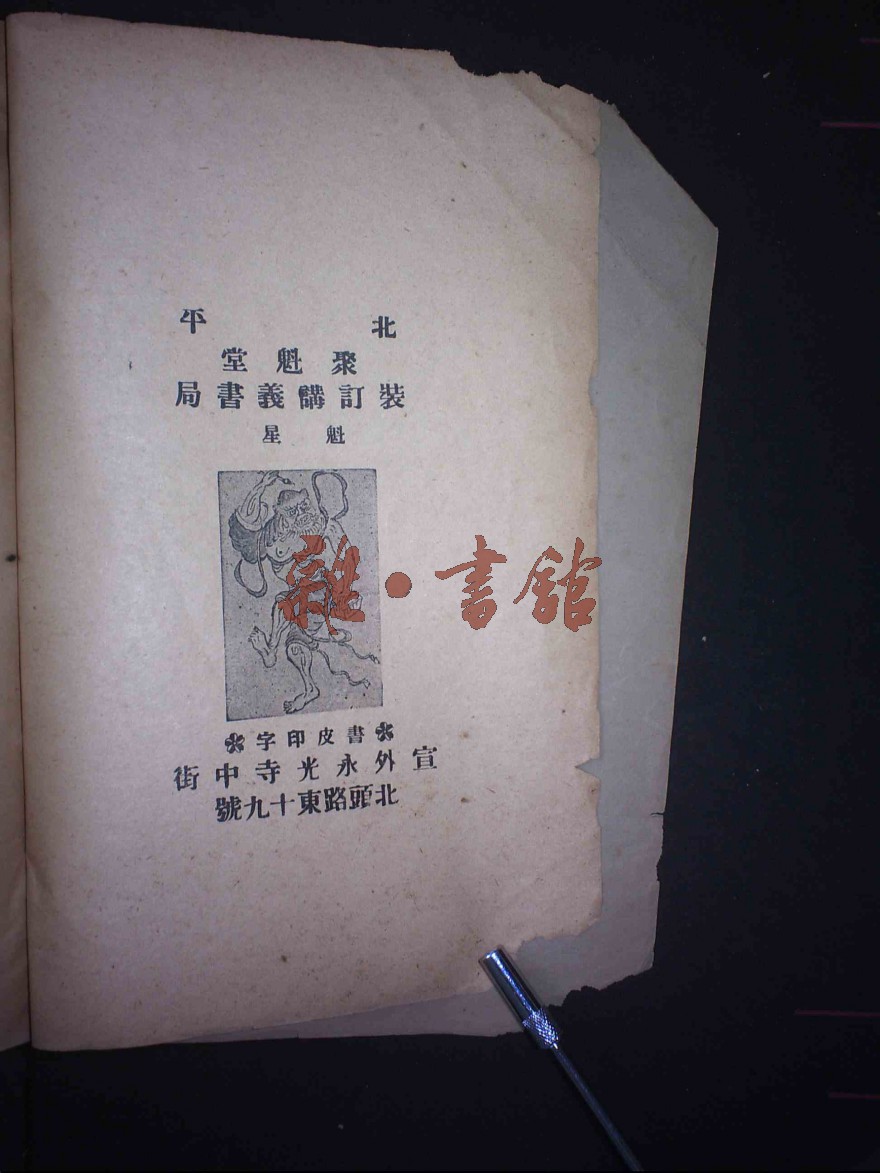 北平
聚魁堂
裝訂講義書局
魁星
雜·書館
❀書皮印字❀
宣外永光寺中街
北頭路東十九號